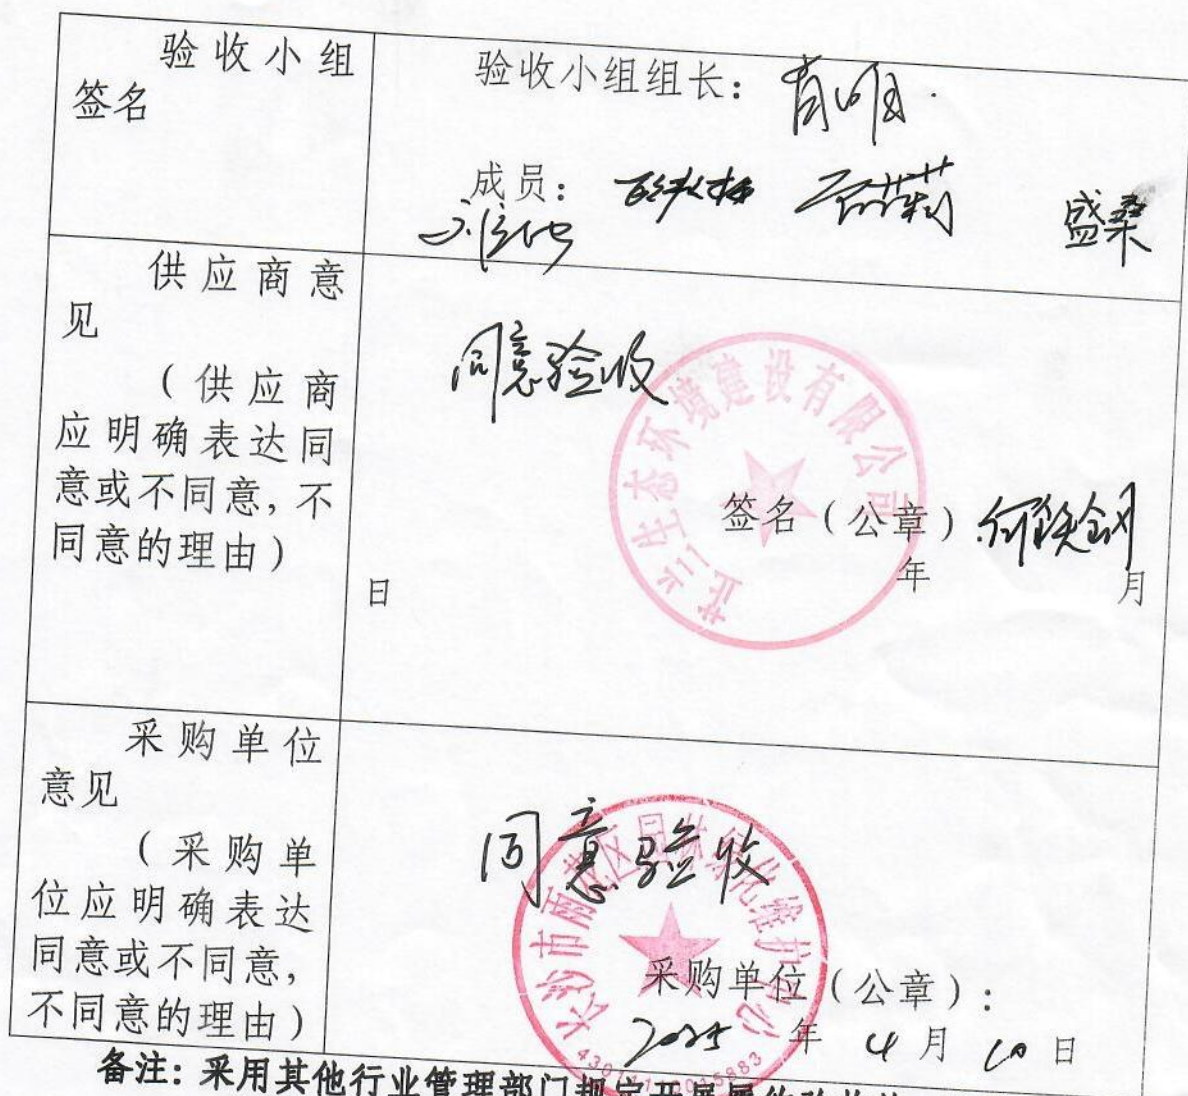 验收小组
签名
验收小组组长：
成员：
盛桑
供应商意
见
（供应商
应明确表达同
意或不同意，不
同意的理由）
同意验收
芷兰生态环境建设有限公司
签名（公章）
年 月
日
采购单位
意见
（采购单
位应明确表达
同意或不同意，
不同意的理由）
同意验收
长沙市雨花区园林绿化维护中心
采购单位（公章）：
2025 年 4 月 10 日
备注：采用其他行业管理部门规定开展履约验收